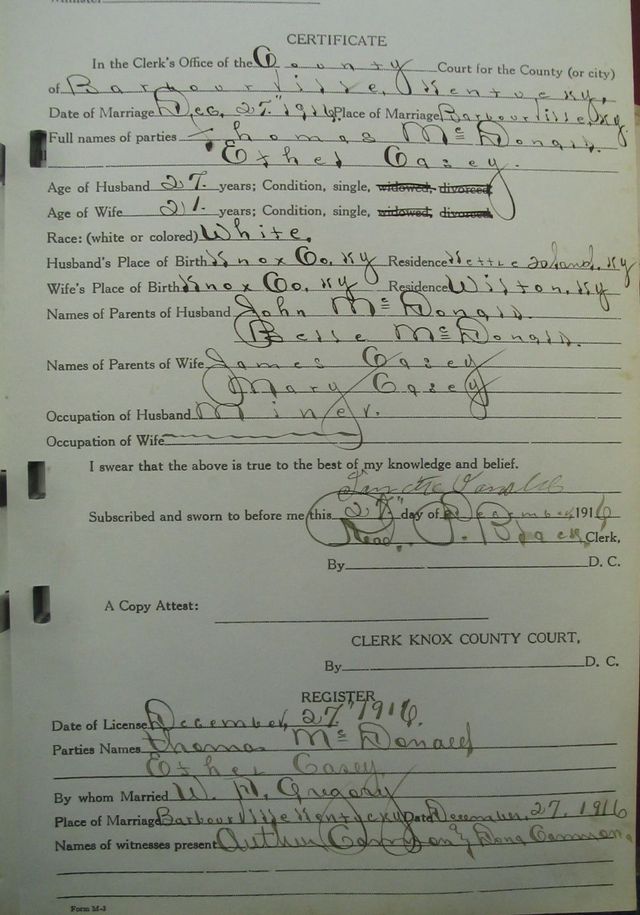 CERTIFICATE
In the Clerk's Office of the County Court for the County (or city)
of Barbourville, Kentucky,
Date of Marriage Dec, 27" 1916 Place of Marriage Barbourville, Ky.
Full names of parties Thomas Mc Donald.
Ethel Casey.
Age of Husband 27. years; Condition, single, widowed, divorced
Age of Wife 21. years; Condition, single, widowed, divorced
Race: (white or colored) White.
Husband's Place of Birth Knox Co, Ky Residence Island, Ky
Wife's Place of Birth Knox Co. Ky Residence Wilton, Ky
Names of Parents of Husband John Mc Donald.
Belle Mc Donald.
Names of Parents of Wife James Casey
Mary Casey
Occupation of Husband Miner.
Occupation of Wife
I swear that the above is true to the best of my knowledge and belief.
Subscribed and sworn to before me this 27" day of December 1916
Read. P. Black, Clerk,
By D. C.
A Copy Attest:
CLERK KNOX COUNTY COURT,
By D. C.
REGISTER
Date of License December, 27" 1916.
Parties Names Thomas Mc Donald
Ethel Casey
By whom Married W. H. Gregory
Place of Marriage Barbourville Kentucky Date December, 27, 1916
Names of witnesses present Cannon & Cannon.
Form M-3